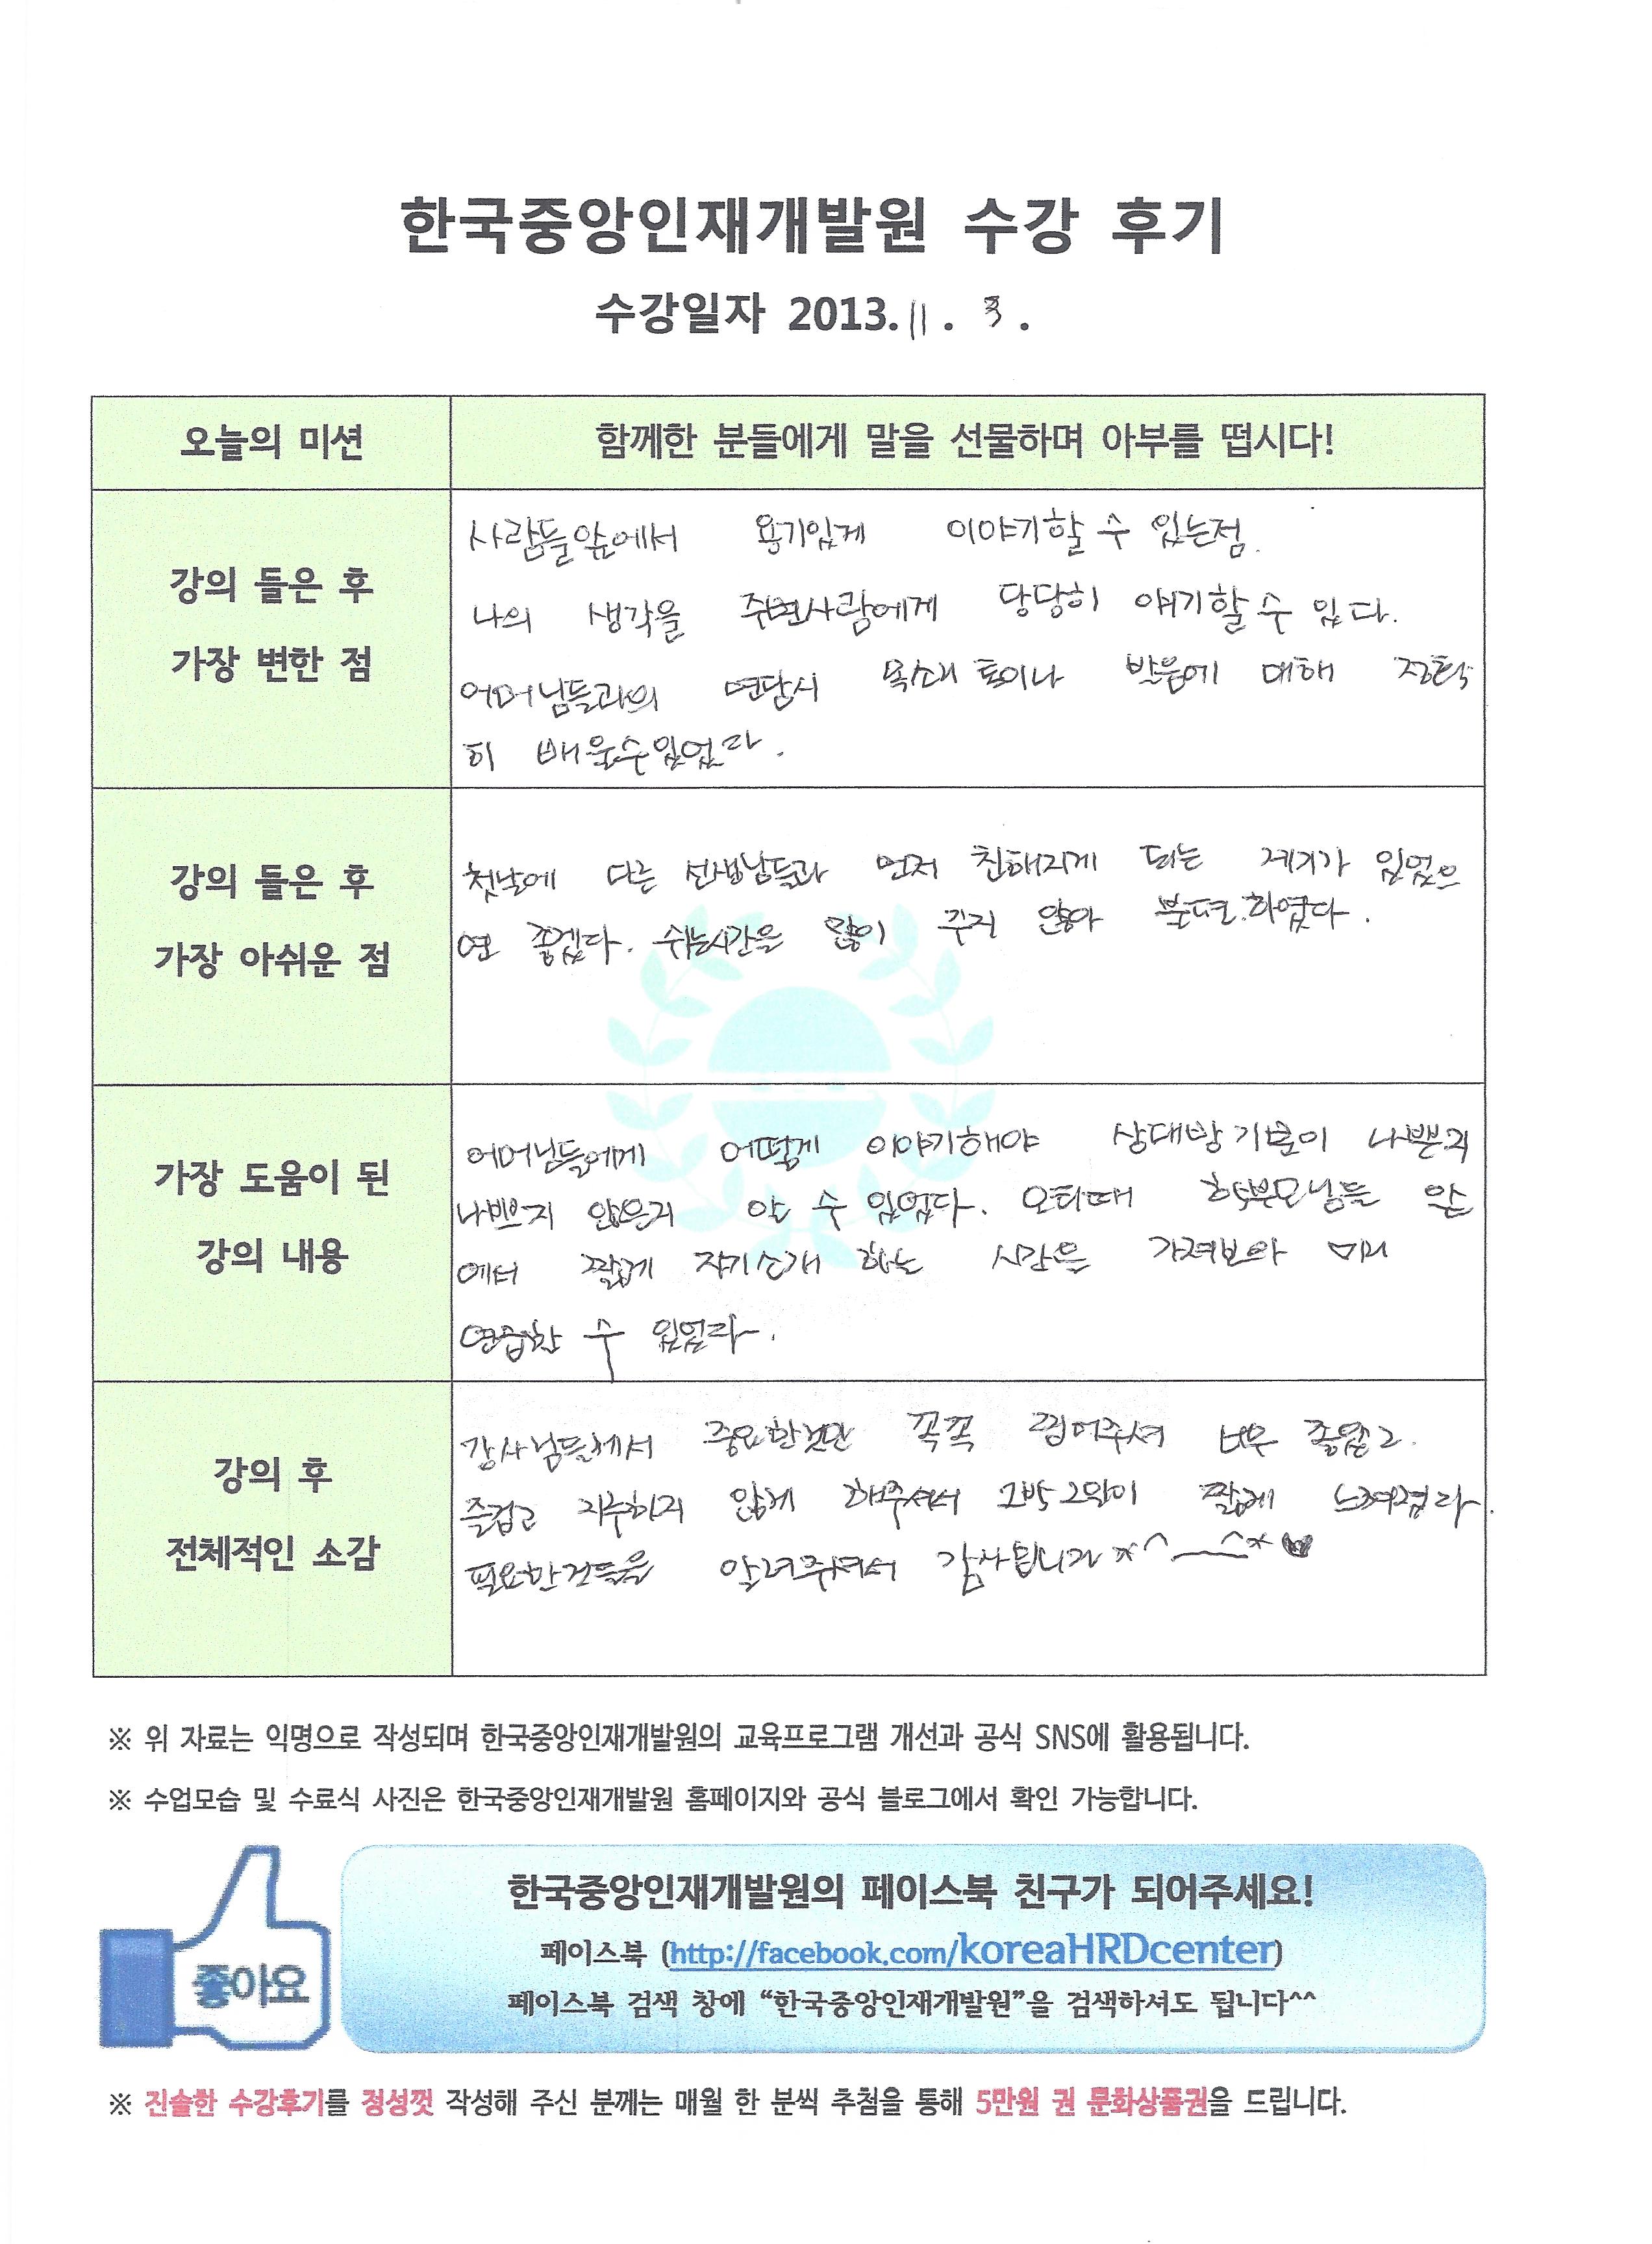 한국중앙인재개발원 수강 후기
수강일자 2013. 11 . 3 .
오늘의 미션
함께한 분들에게 말을 선물하며 아부를 떱시다!
강의 들은 후
가장 변한 점
사람들앞에서 용기있게 이야기할 수 있는점.
나의 생각을 주변사람에게 당당히 얘기할 수 있다.
어머님들과의 면담시 목소리 톤이나 발음에 대해 정확
히 배울수있었다.
강의 들은 후
가장 아쉬운 점
첫날에 다른 선생님들과 먼저 친해지게 되는 계기가 있었으
면 좋겠다. 쉬는시간을 많이 주지 않아 불편하였다.
가장 도움이 된
강의 내용
어머님들에게 어떻게 이야기해야 상대방 기분이 나쁜지
나쁘지 않은지 알 수 있었다. 오티때 학부모님들 앞
에서 짧게 자기소개 하는 시간을 가져보아 미리
연습할 수 있었다.
강의 후
전체적인 소감
강사님들께서 중요한것만 꼭꼭 찝어주셔 너무 좋았고.
즐겁고 지루하지 않게 해주셔서 2박3일이 짧게 느껴졌다.
필요한것들을 알려주셔서 감사합니다 *^__^* ♥
※ 위 자료는 익명으로 작성되며 한국중앙인재개발원의 교육프로그램 개선과 공식 SNS에 활용됩니다.
※ 수업모습 및 수료식 사진은 한국중앙인재개발원 홈페이지와 공식 블로그에서 확인 가능합니다.
좋아요
한국중앙인재개발원의 페이스북 친구가 되어주세요!
페이스북 (http://facebook.com/koreaHRDcenter)
페이스북 검색 창에 “한국중앙인재개발원”을 검색하셔도 됩니다^^
※ 진솔한 수강후기를 정성껏 작성해 주신 분께는 매월 한 분씩 추첨을 통해 5만원 권 문화상품권을 드립니다.